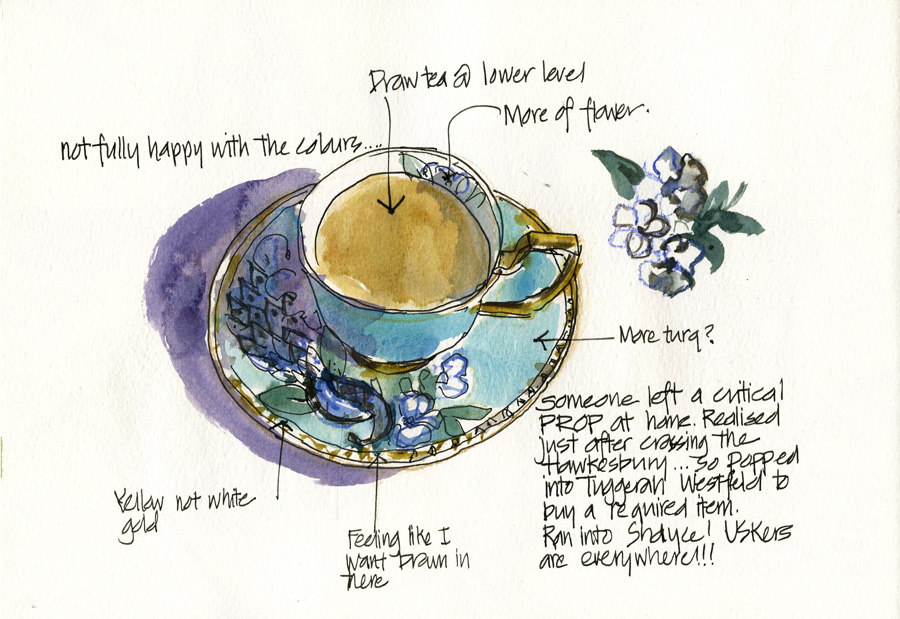 Draw tea @ lower level
More of flower.
not fully happy with the colours....
More turq?
Someone left a critical
PROP at home. Realised
just after crossing the
Hawkesbury... So popped
into Tuggerah Westfield to
buy a required item.
Ran into Shalyce! USKers
are everywhere!!!
Yellow not white
gold
Feeling like I
want brown in
here